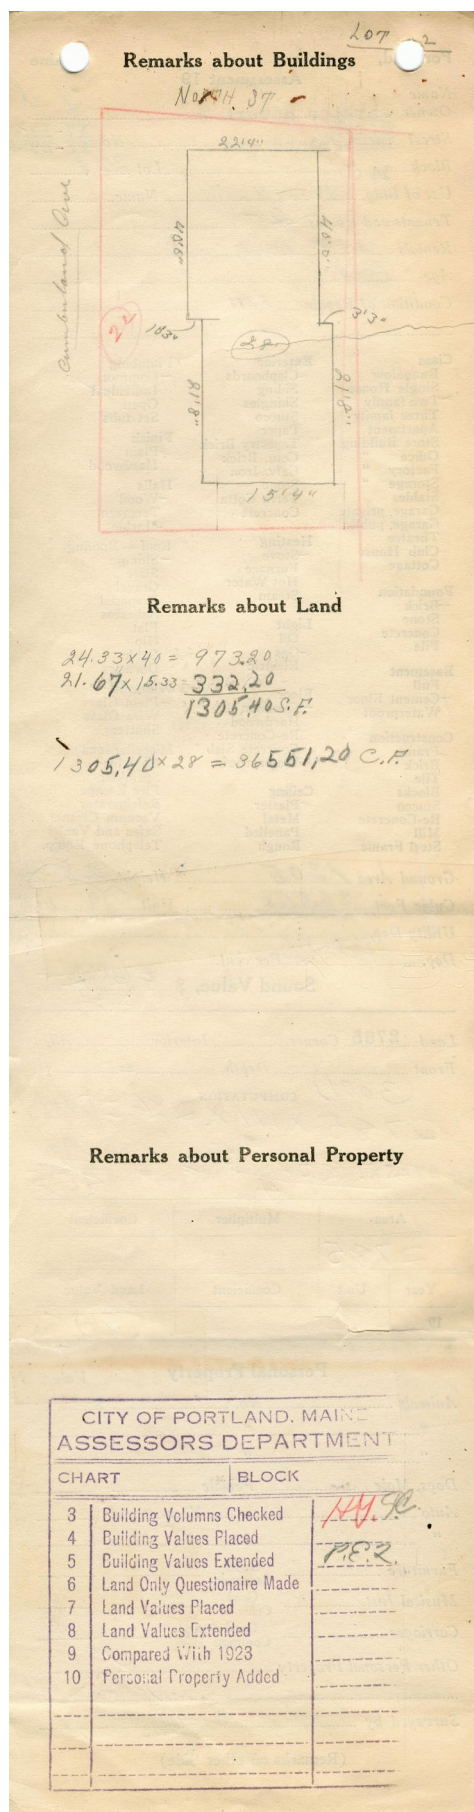 LOT 2
Remarks about Buildings
NORTH 37
22'4"
Cumberland Ave
40'0"
40'0"
22
10'3"
28
3'3"
21'8"
21'8"
15'4"
Remarks about Land
24.33 x 40 = 973.20
21.67 x 15.33 = 332,20
1305,40 S.F.
1305,40 x 28 = 36551,20 C.F.
Remarks about Personal Property
CITY OF PORTLAND, MAINE
ASSESSORS DEPARTMENT
CHART BLOCK
3 Building Volumns Checked
4 Building Values Placed
5 Building Values Extended P.E.R.
6 Land Only Questionaire Made
7 Land Values Placed
8 Land Values Extended
9 Compared With 1923
10 Personal Property Added